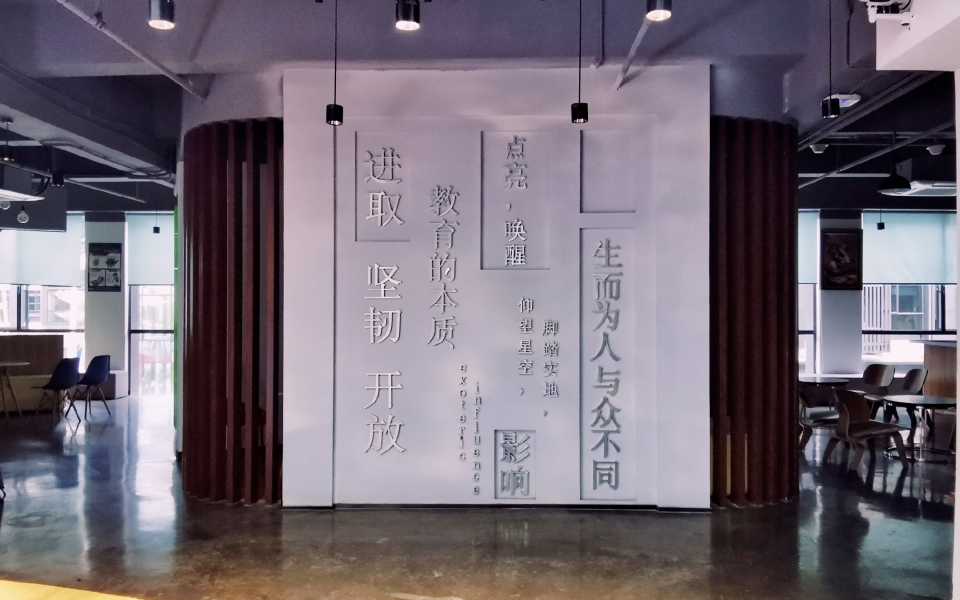 进取 坚韧 开放
教育的本质
exoteric
influence
点亮，唤醒
仰望星空，
脚踏实地，
影响
生而为人与众不同